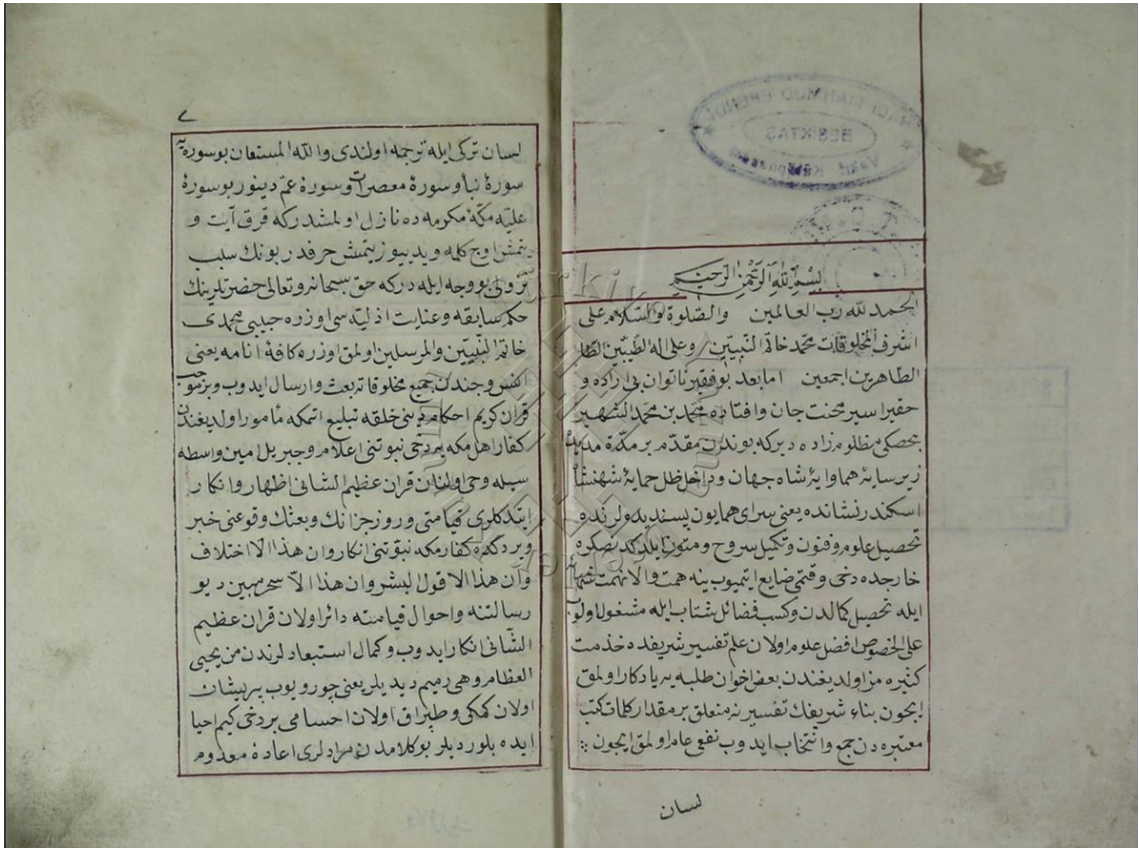 بسم الله الرحمن الرحيم
الحمد لله رب العالمين والصلوة والسلام على
اشرف المخلوقات محمد خاتم النبيين وعلى اله الطيبين الطا
الطاهرين اجمعين اما بعد بو فقير ناتوان بى اراده و
حقير اسير محنت جان وافتاده محمد بن محمد الشهير
بخصكى مظلوم زاده ديركه بوندن مقدم بر مدة مديد
زير سايۀ هماوايۀ شاه جهان وداخل ظل حمايۀ شهنشا
اسكندر نشانده يعنى سراى همايون پسنديده لرنده
تحصيل علوم وفنون وتكميل سروح ومتون ايلدكدنصكره
خارجده دخى وقتمى ضايع ايتميوب ينه همت والانهمت
ايله تحصيل كمالدن وكسب فضائل شتاب ايله مشغول اولوب
على الخصوص افضل علوم اولان علم تفسير شريفده خدمت
كثيره مز اولديغندن بعض اخوان طلبه يه يادكار اولمق
ايچون بناء شريفك تفسيرنه متعلق بر مقدار كلمات كتب
معتبره دن جمع وانتخاب ايدوب نفعى عام اولمق ايچون
لسان
٧
لسان تركى ايله ترجمه اولندى والله المستعان بو سوره يه
سورۀ نبأ وسورۀ معصرات وسورۀ عم دينور بو سورۀ
عليه مكۀ مكرمه ده نازل اولمشدركه قرق آيت و
يتمش اوچ كلمه ويدييوز يتمش حرفدر بونك سبب
نزولى بو وجه ايله دركه حق سبحانه وتعالى حضرتلرينك
حكم سابقه وعنايت ازليه سى اوزره حبيبى محمدى
خاتم النبيين والمرسلين اولمق اوزره كافۀ انامه يعنى
انس وجندن جميع مخلوقاته بعث وارسال ايدوب وبرموجب
قران كريم احكام دينى خلقه تبليغ اتمكه مامور اولديغندن
كفار اهل مكه يه دخى نبوتنى اعلام وجبريل امين واسطه
سيله وحى اولنان قران عظيم الشانى اظهار وانكار
ايتدكلرى قيامتى وروز جزانك وبعثك وقوعنى خبر
ويردكده كفار مكه نبوتنى انكار وان هذا الا اختلاق
وان هذا الا قول البشر وان هذا الا سحر مبين ديو
رسالتنه واحوال قيامته دائر اولان قران عظيم
الشانى انكار ايدوب وكمال استبعادلرندن من يحيى
العظام وهى رميم ديديلر يعنى چورويوب پريشان
اولان كمكى وطپراق اولان اجسامى بر دخى كيم احيا
ايده بلور ديلر بو كلامدن مرادلرى اعادۀ معدوم